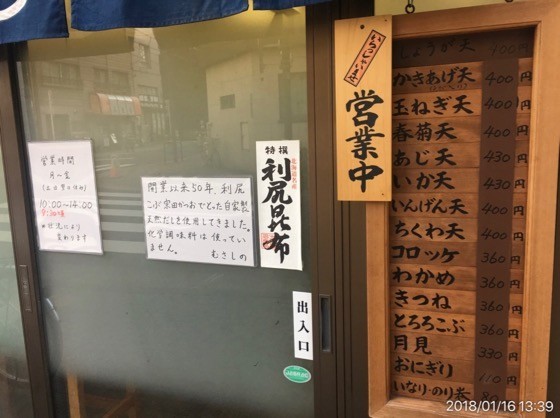 営業時間
月～金
10:00～14:00
※状況により
変わります
開業以来50年、利尻
こぶ宗田かつおでとった自家製
天然だしを使用してきました。
化学調味料は使ってい
ません。 むさしの
特撰
北海道名産
利尻昆布
出入口
いらっしゃいませ
営業中
しょうが天 400円
かきあげ天 400円
玉ねぎ天 400円
春菊天 400円
あじ天 430円
いか天 430円
いんげん天 400円
ちくわ天 400円
コロッケ 360円
わかめ 360円
きつね 360円
とろろこぶ 360円
月見 330円
おにぎり 110円
いなり・のり巻
2018/01/16 13:39